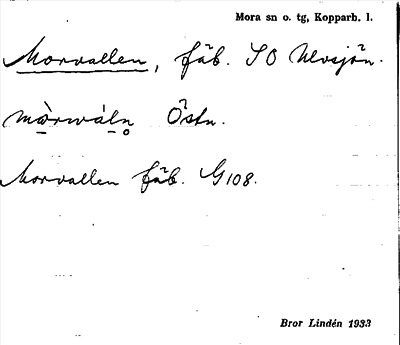 Mora sn o. tg, Kopparb. l.
Morvallen, fäb. SO Ulvsjön.
mòrwáln̥ Östn.
Morvallen fäb. G 108.
Bror Lindén 1933